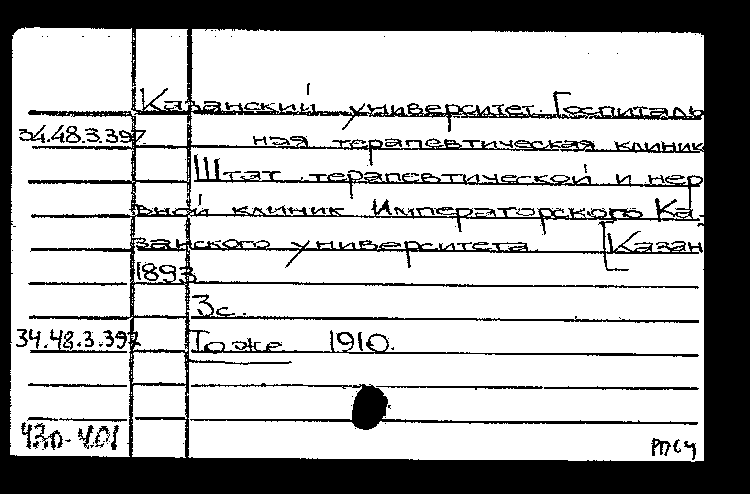 Казанский университет. Госпиталь
34.48.3.397 ная терапевтическая клиник
Штат терапевтической и нер
вной клиник Императорского Ка-
занского университета. [Казан
1893
3с.
34.48.3.397 То же 1910.